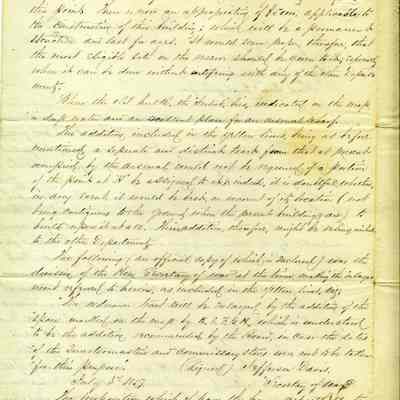 this point. There is now an appropriation of $ applicable to
the construction of this building; which will be a permanent
structure and last for ages. It would seem proper, therefore, that
the most eligible site on the reserve should be
when it can be done without interfering with any of the other Depart-
ments.
Where the old hulk, the is indicated on the map
is deep water and an excellent place for an arsenal wharf.
The addition, included in the yellow lines, being as before
mentioned a separate and distinct tract from that at present
occupied by the arsenal would not be required, if a portion
of the point at H be assigned to it; indeed, it is doubtful whether,
in any event it would be best, on account of its location (not
being contiguous to the ground, where the present buildings are) to
build upon it at all. This addition, therefore, might be relinquished
to the other Departments.
The following (an official copy of which is enclosed) was the
decision of the Hon. Secretary of War at the time, making the enlarge-
ment referred to herein, as included in the yellow lines, viz:
The ordnance tract will be enlarged by the addition of the
space marked on the map by which is understood
to be the addition recommended by the Board, in case the sites
of the Quartermaster and Commissary stores were not to be taken
for other purposes. (signed) Jefferson Davis.
Secretary of War
The proposition which I have the